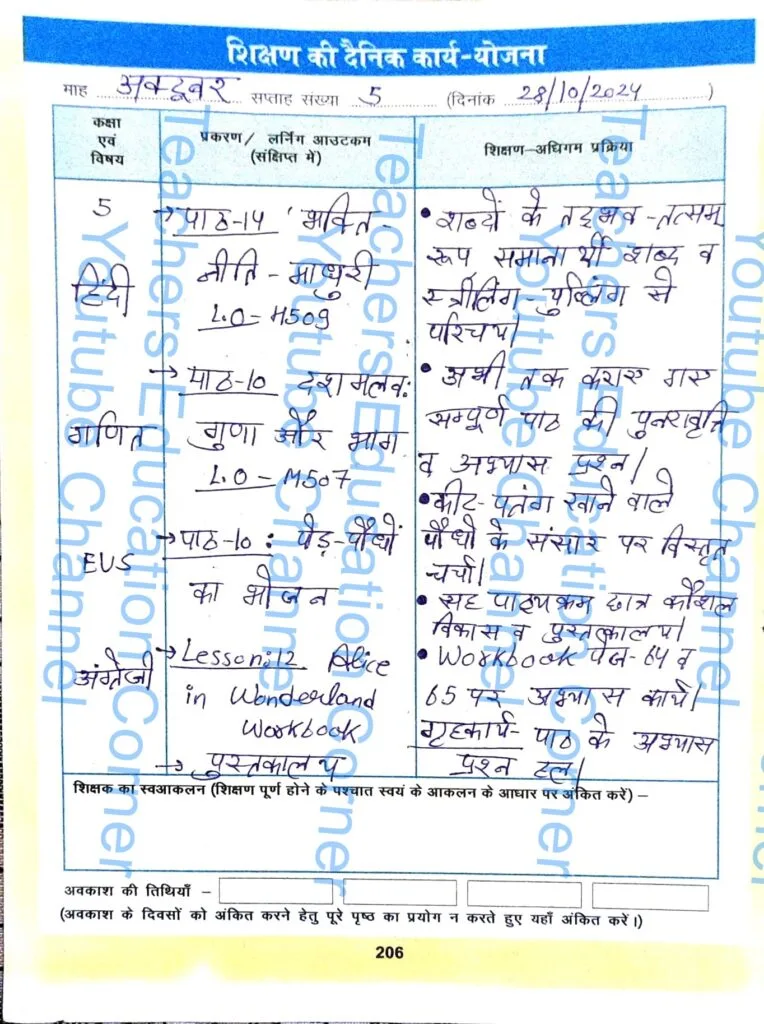 शिक्षण की दैनिक कार्य-योजना
माह अक्टूबर सप्ताह संख्या 5 (दिनांक 28/10/2024)
कक्षा एवं विषय
प्रकरण/ लर्निंग आउटकम (संक्षिप्त में)
शिक्षण-अधिगम प्रक्रिया
5
हिंदी
→ पाठ-14 'भक्ति-
नीति-माधुरी
L.O-H509
• शब्दों के तद्भव-तत्सम्
रूप समानार्थी शब्द व
स्त्रीलिंग-पुल्लिंग से
परिचय।
गणित
→ पाठ-10 दशमलव:
गुणा और भाग
L.O-M507
• अभी तक कराए गए
सम्पूर्ण पाठ की पुनरावृत्ति
व अभ्यास प्रश्न।
EVS
→ पाठ-10: पेड़-पौधों
का भोजन
• कीट-पतंग खाने वाले
पौधों के संसार पर विस्तृत
चर्चा।
• सह पाठ्यक्रम छात्र कौशल
विकास व पुस्तकालय।
अंग्रेजी
→ Lesson:12 Alice
in Wonderland
Workbook
→ पुस्तकालय
• Workbook पेज-64 व
65 पर अभ्यास कार्य।
गृहकार्य- पाठ के अभ्यास
प्रश्न हल।
शिक्षक का स्वआकलन (शिक्षण पूर्ण होने के पश्चात स्वयं के आकलन के आधार पर अंकित करें) –
अवकाश की तिथियाँ –
(अवकाश के दिवसों को अंकित करने हेतु पूरे पृष्ठ का प्रयोग न करते हुए यहाँ अंकित करें।)
206
Teachers Education Corner
Youtube Channel
Teachers Education Corner
Youtube Channel
Teachers Education Corner
Youtube Channel